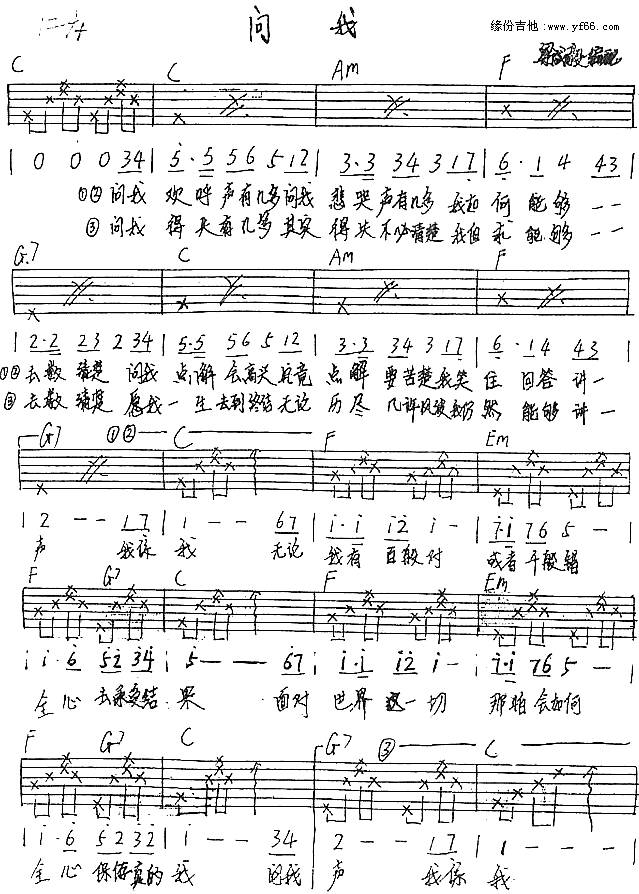 缘份吉他: www.yf66.com
问 我
C C Am F
| 0 0 0 34 | 5·5 56 5 12 | 3·3 34 3 17 | 6·1 4 43
①② 问我 欢呼声有几多问我 悲哭声有几多 我 如何能够 --
③ 问我 得失有几多其实 得失不必清楚我但求能够 --
G7 C Am F
| 2·2 23 2 34 | 5·5 56 5 12 | 3·3 34 3 17 | 6·14 43
①② 去数清楚 问我 点解会高兴究竟 点解要苦楚我笑住回答讲一
③ 去数清楚 愿我一生去到终结无论 历尽几许风波我仍然能够讲一
G7 ①② C F Em
| 2 - - 17 | 1 - - 67 | i·i i2 i - | 7·i 76 5 -
声 我系 我 无论 我有百般对 或者千般错
F G7 C F Em
i i·6 52 34 | 5 - - 67 | i·i i2 i - | 7·i 76 5 -
全心去承受结果 面对 世界这一切 那怕会如何
F G7 C G7 ③ C
| i i·6 52 32 | i - - 34 | 2 - - 17 | 1 - - - |
全心保存真的我 问我 声 我系 我